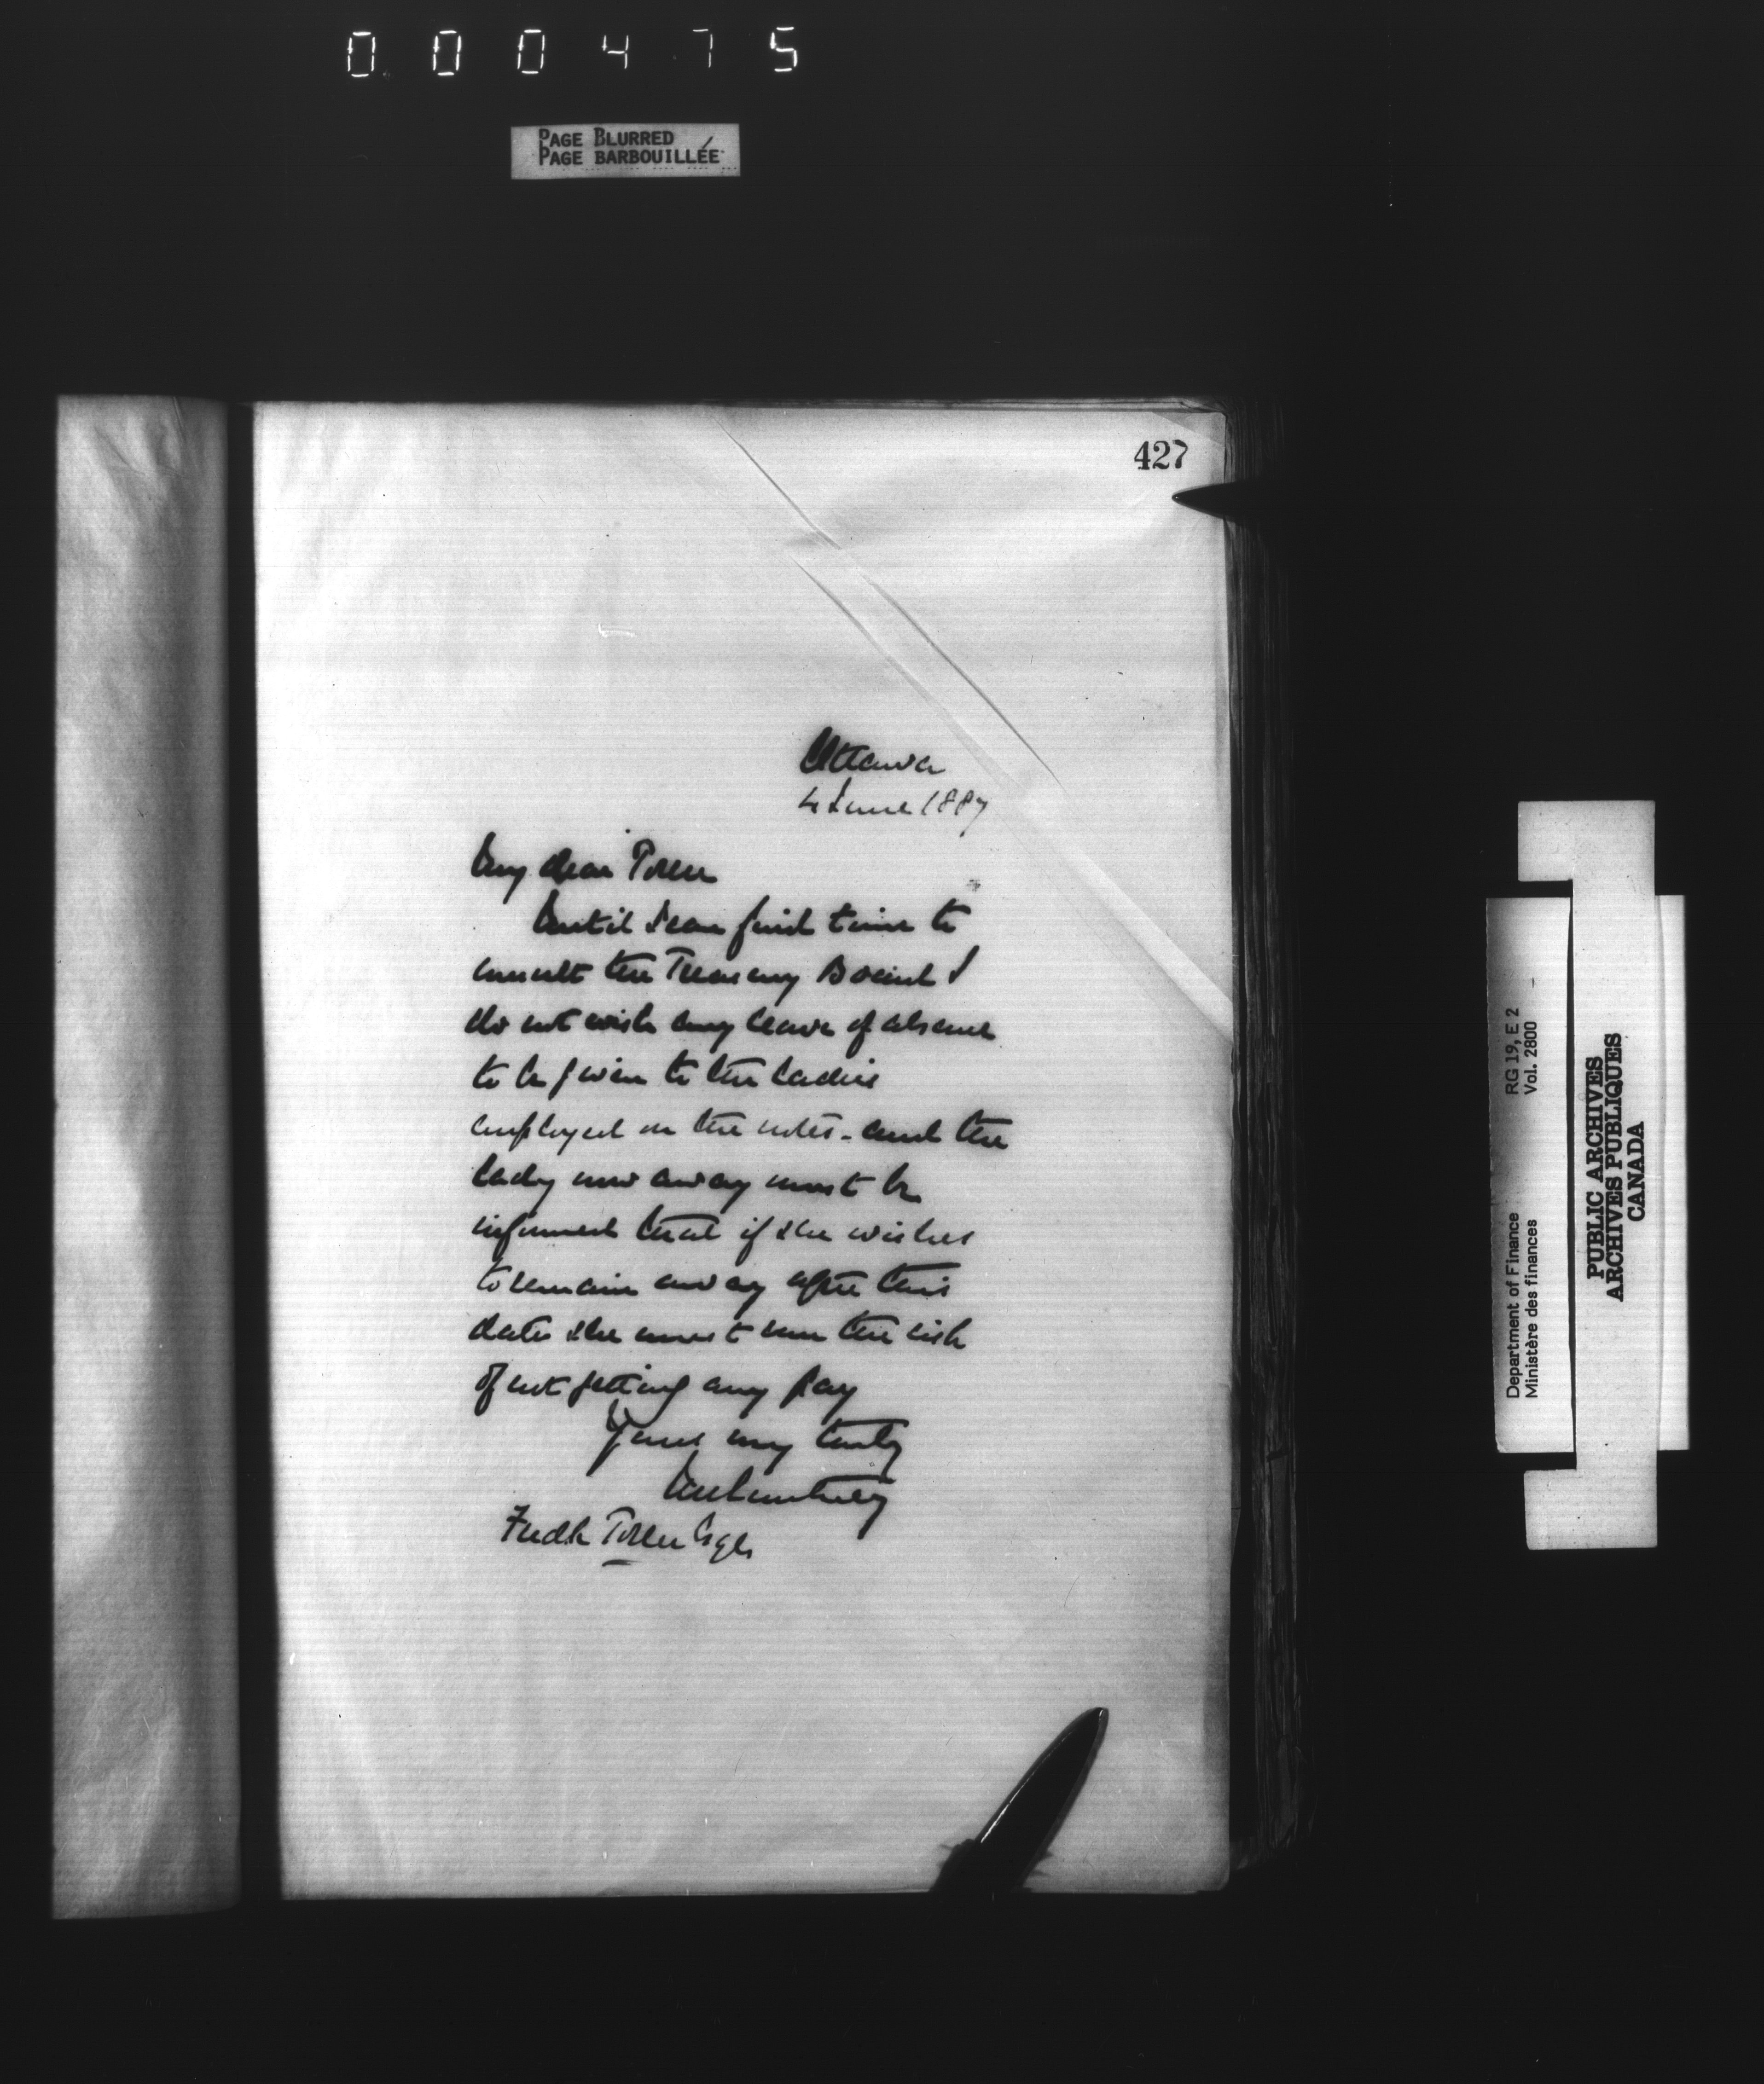 000475
PAGE BLURRED
PAGE BARBOUILLÉE
427
Ottawa
4 June 1887
My dear Toller
Until I can find time to
consult the Treasury Board I
do not wish any leave of absence
to be given to the ladies
employed on the notes - and the
lady now away must be
informed that if she wishes
to remain away after this
date she must run the risk
of not getting any pay
Yours very truly
JM Courtney
Fredk Toller Esqr
Department of Finance RG 19, E 2
Ministère des finances Vol. 2800
PUBLIC ARCHIVES
ARCHIVES PUBLIQUES
CANADA